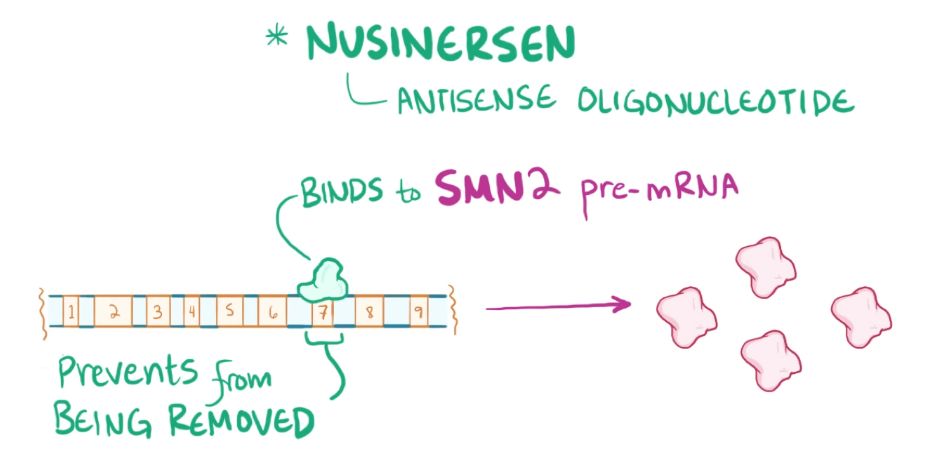 * NUSINERSEN
ANTISENSE OLIGONUCLEOTIDE
BINDS to SMN2 pre-mRNA
1 2 3 4 5 6 7 8 9
Prevents from
BEING REMOVED